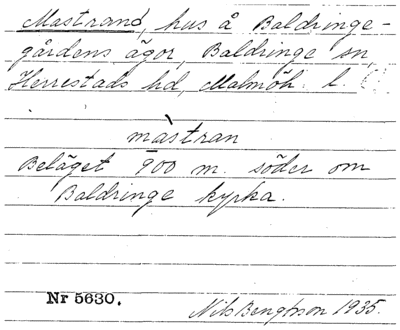 Mastrand, hus å Baldringe-
gårdens ägor, Baldringe sn,
Herrestads hd, Malmöh. l.
màstran
Beläget 900 m. söder om
Baldringe kyrka.
Nr 5630.
Nils Bengtsson 1935.